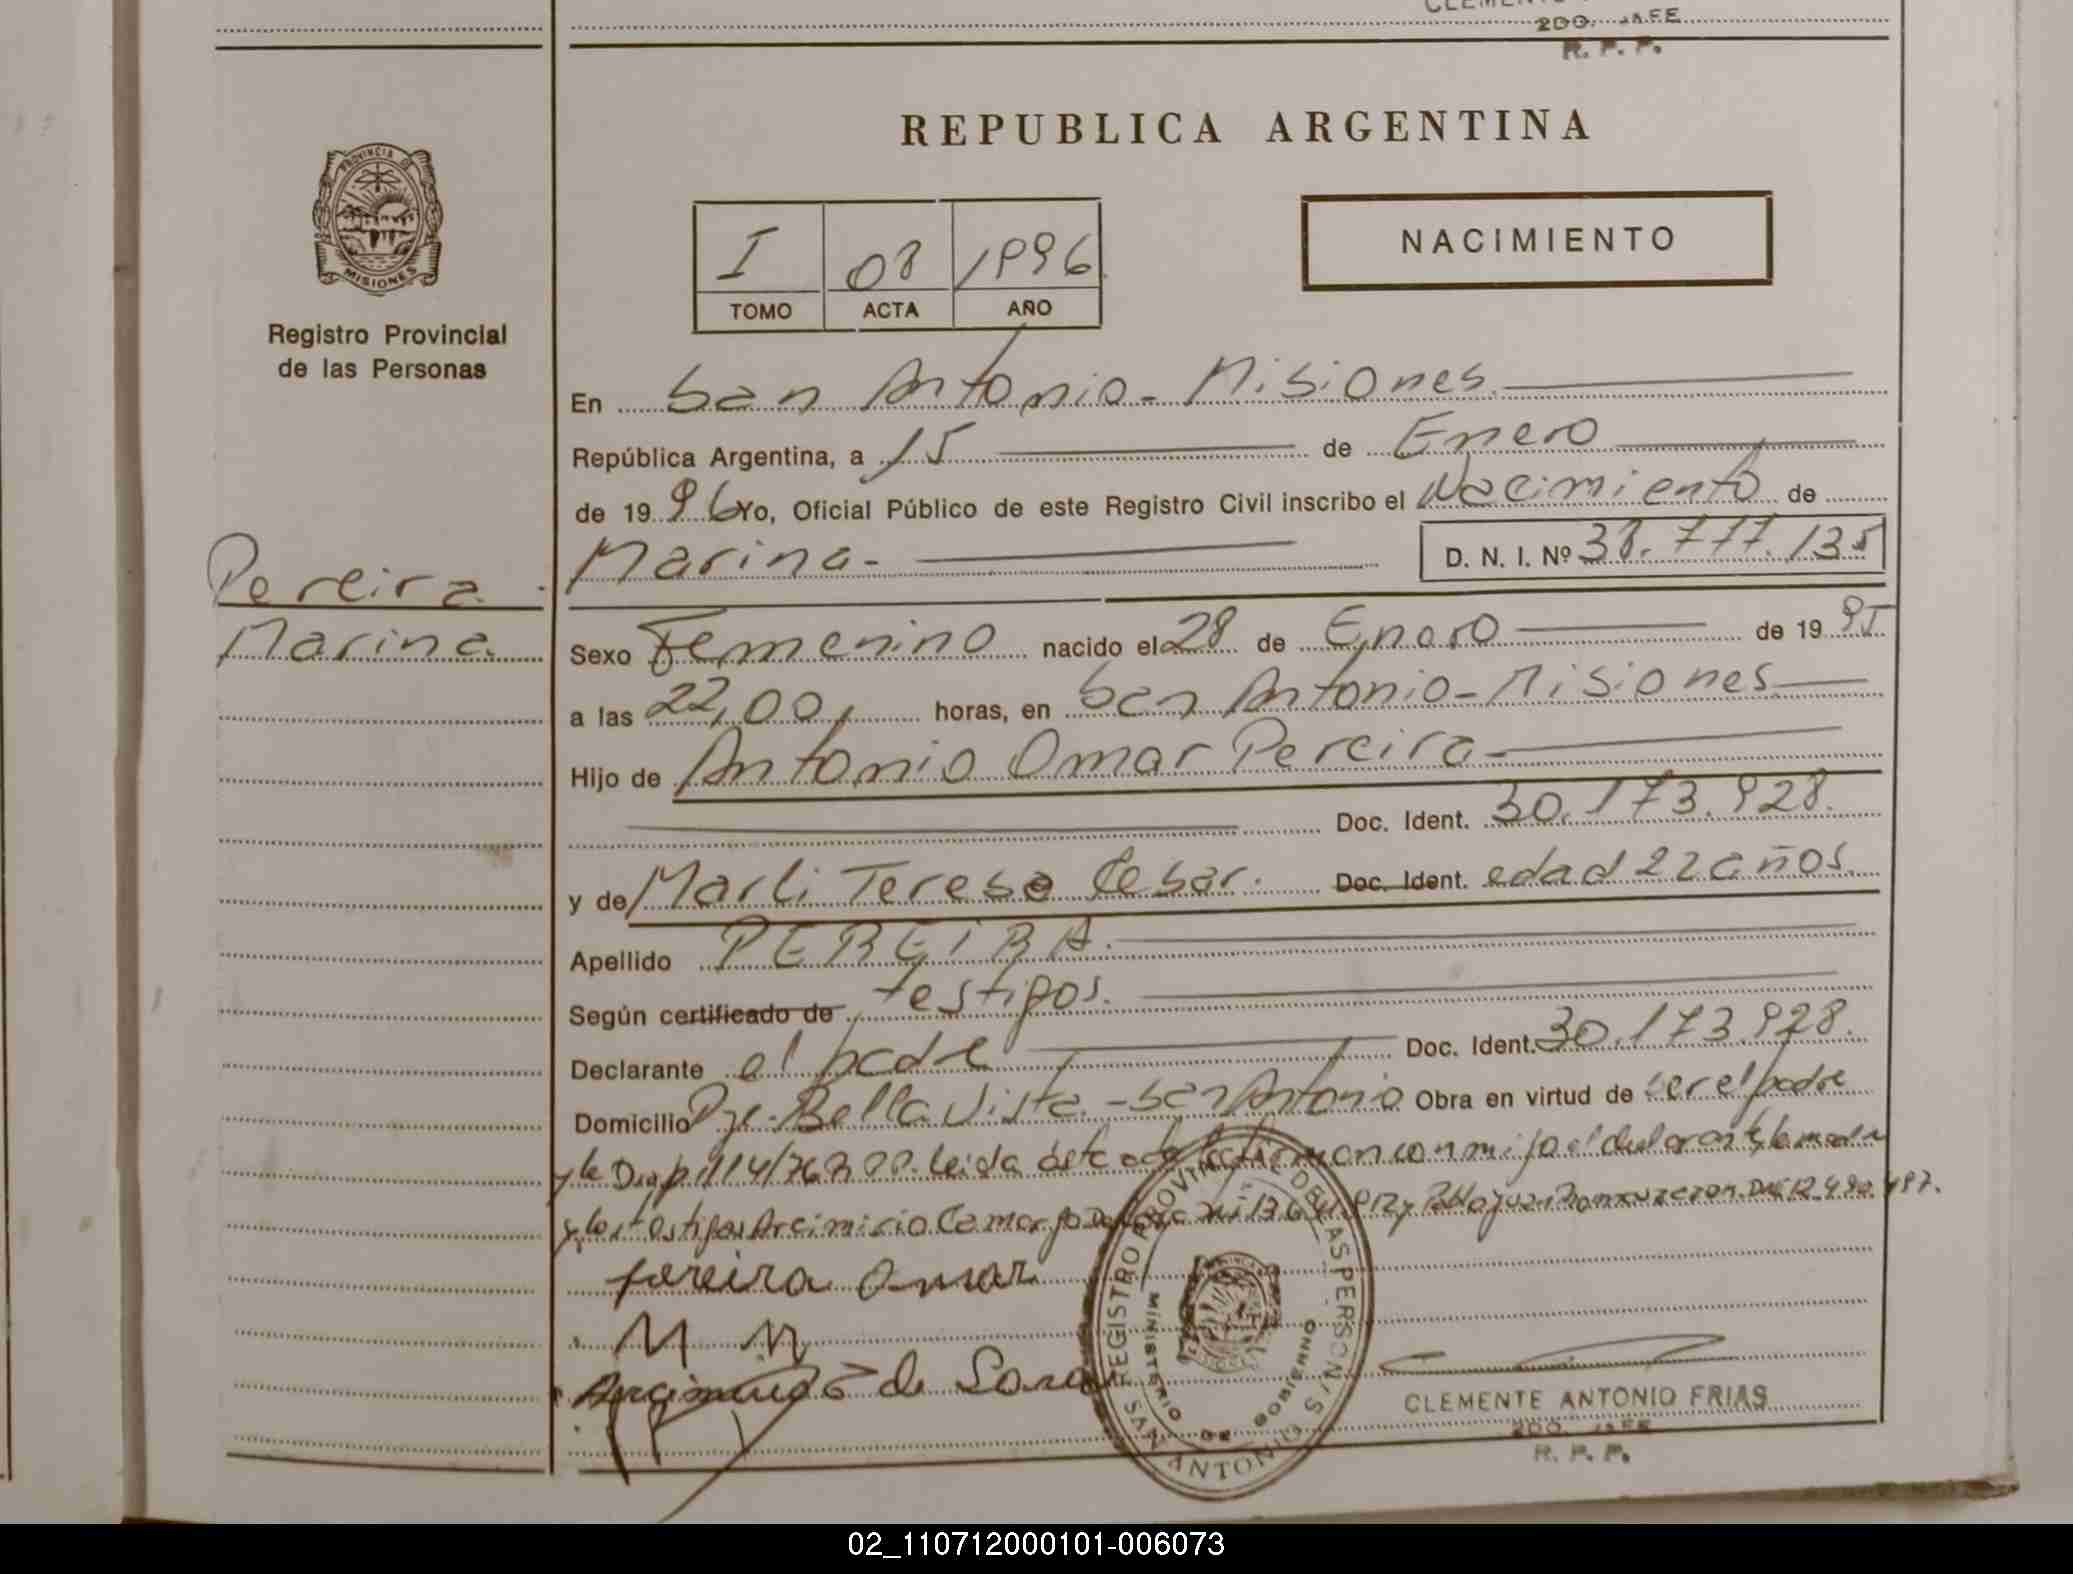 200. JEFE
R. P. P.
REPUBLICA ARGENTINA
PROVINCIA DE
MISIONES
NACIMIENTO
I 08 1996
TOMO ACTA AÑO
Registro Provincial
de las Personas
En San Antonio - Misiones.
República Argentina, a 15 de Enero
de 1996 Yo, Oficial Público de este Registro Civil inscribo el Nacimiento de
Marina - D. N. I. Nº 38.777.135
Pereira
Marina
Sexo Femenino nacido el 28 de Enero de 1995
a las 22,00, horas, en San Antonio - Misiones
Hijo de Antonio Omar Pereira -
Doc. Ident. 30.173.928.
y de Marli Teresa Cesar. Doc. Ident. edad 22 años.
Apellido PEREIRA.
Según certificado de testigos.
Declarante el padre Doc. Ident. 30.173.928.
Domicilio Pje. Bella Vista - San Antonio Obra en virtud de ser el padre
Leida ésta acta la firman conmigo el declarante y la madre
y los testigos Arcimirio Camargo De y Pablo Juan DNI 12.490.497.
Pereira Omar
M M
de
REGISTRO PROVINCIAL DE LAS PERSONAS
MINISTERIO DE GOBIERNO
SAN ANTONIO
CLEMENTE ANTONIO FRIAS
2DO. JEFE
R. P. P.
02_110712000101-006073